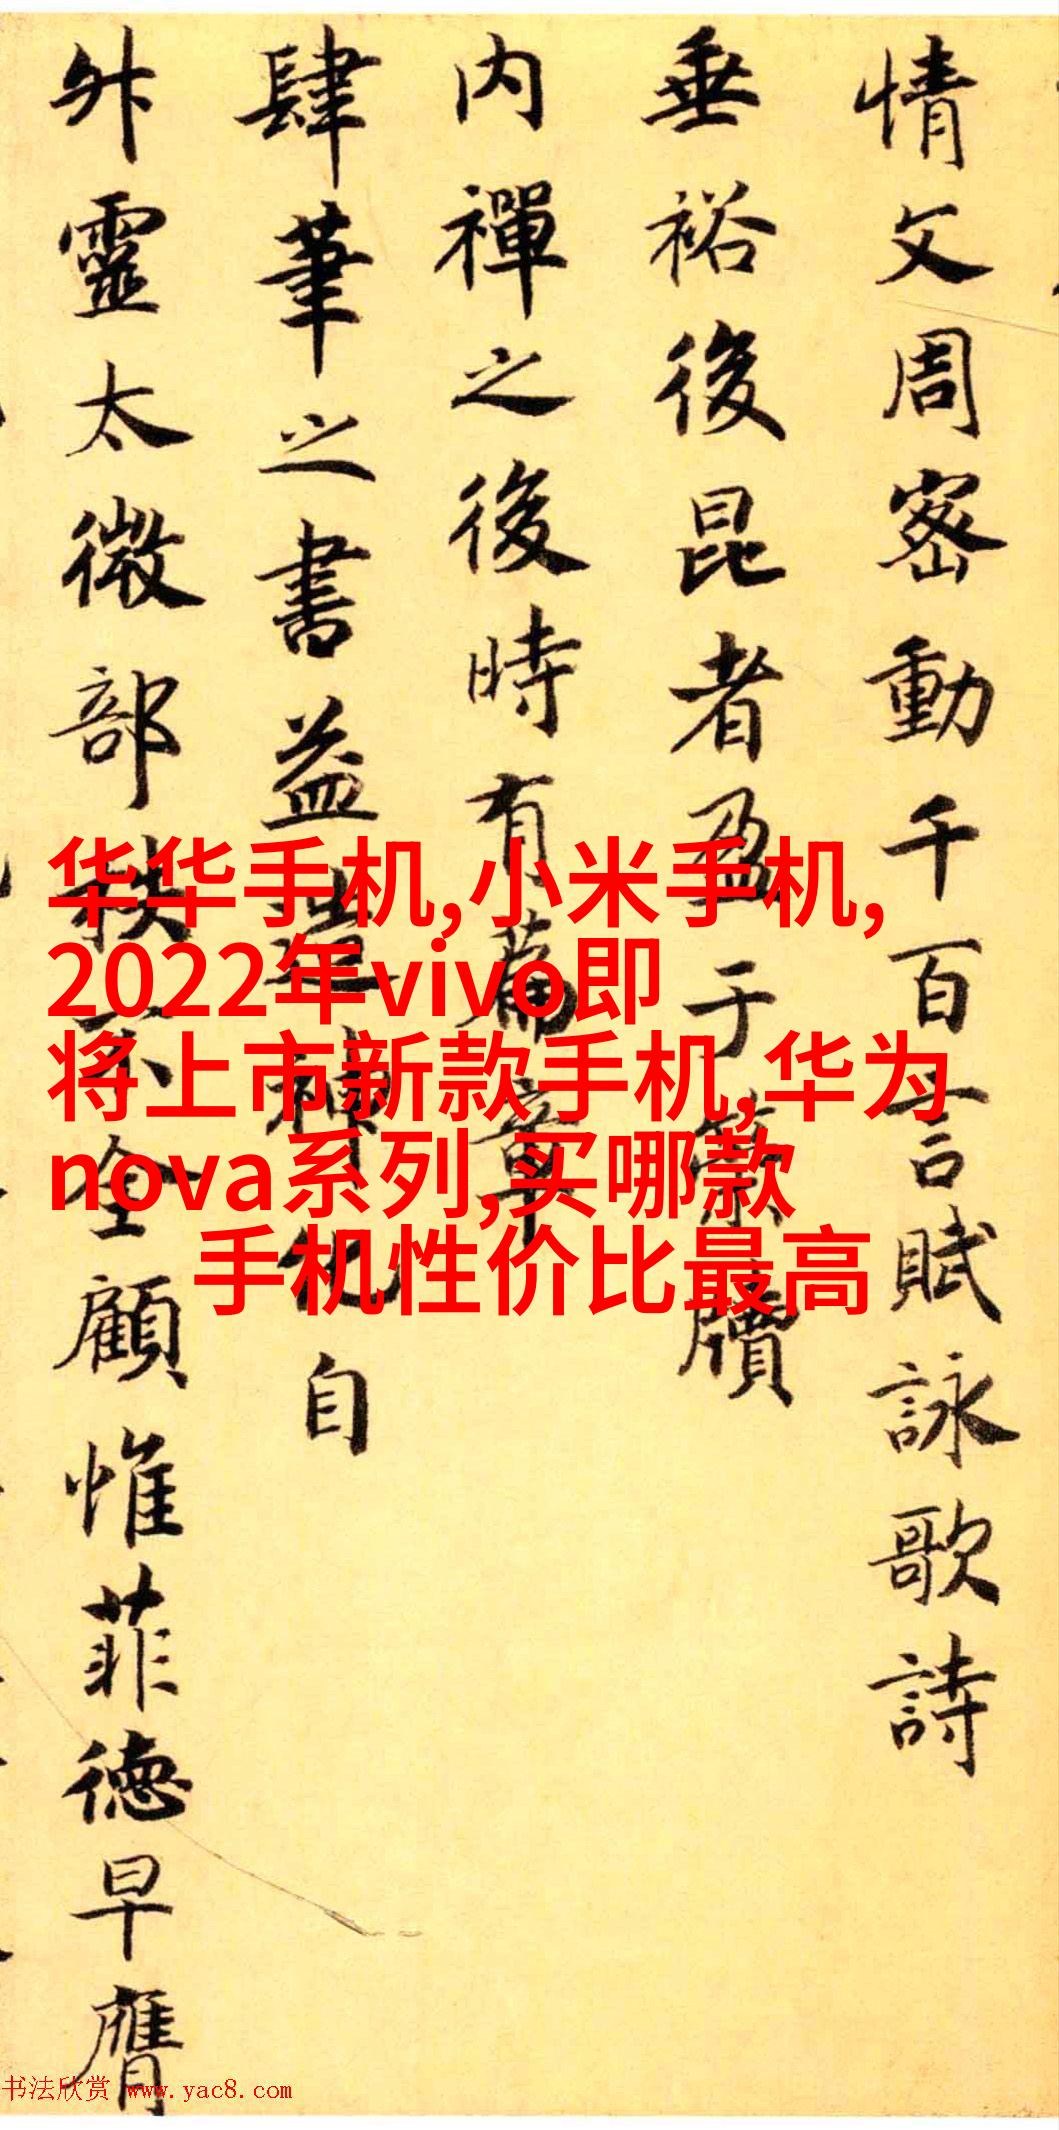 情文周密動千百言賦詠歌詩
垂裕後昆者盈于牘
内禪之後時有篇章
肆筆之書益造神化自
靈太微部秩不全顧惟菲德早膺
华华手机,小米手机,
2022年vivo即
将上市新款手机,华为
nova系列,买哪款
手机性价比最高
书法欣赏 www.yac8.com